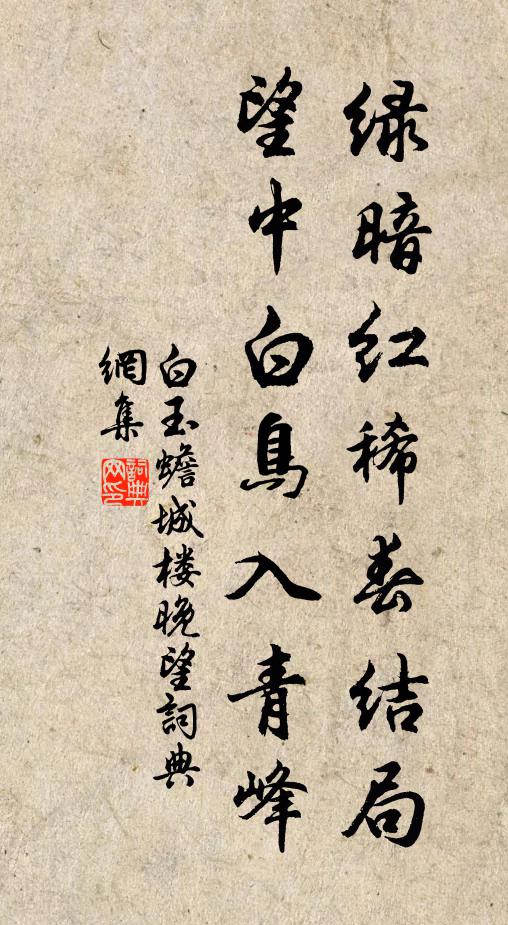 绿暗红稀春结局
望中白鳥入青峰
白玉蟾城楼晚望詞典
網集
詞典网印